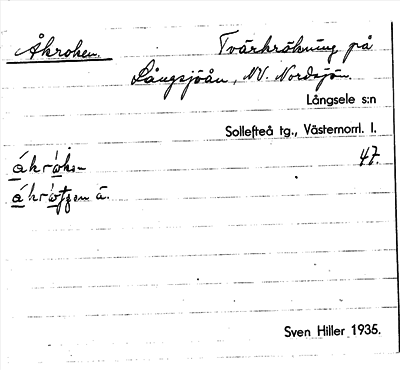 Åkroken. Tvärkrökning på
Långsjöån, NV. Nordsjön.
Långsele s:n
Sollefteå tg., Västernorrl. l.
47.
Sven Hiller 1935.